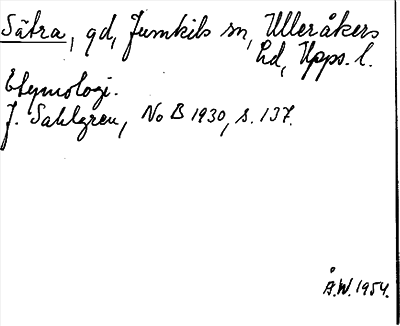 Sätra, gd, Jumkils sn, Ulleråkers
hd, Upps. l.
Etymologi.
J. Sahlgren, No B 1930, s. 137.
Å.W. 1954.